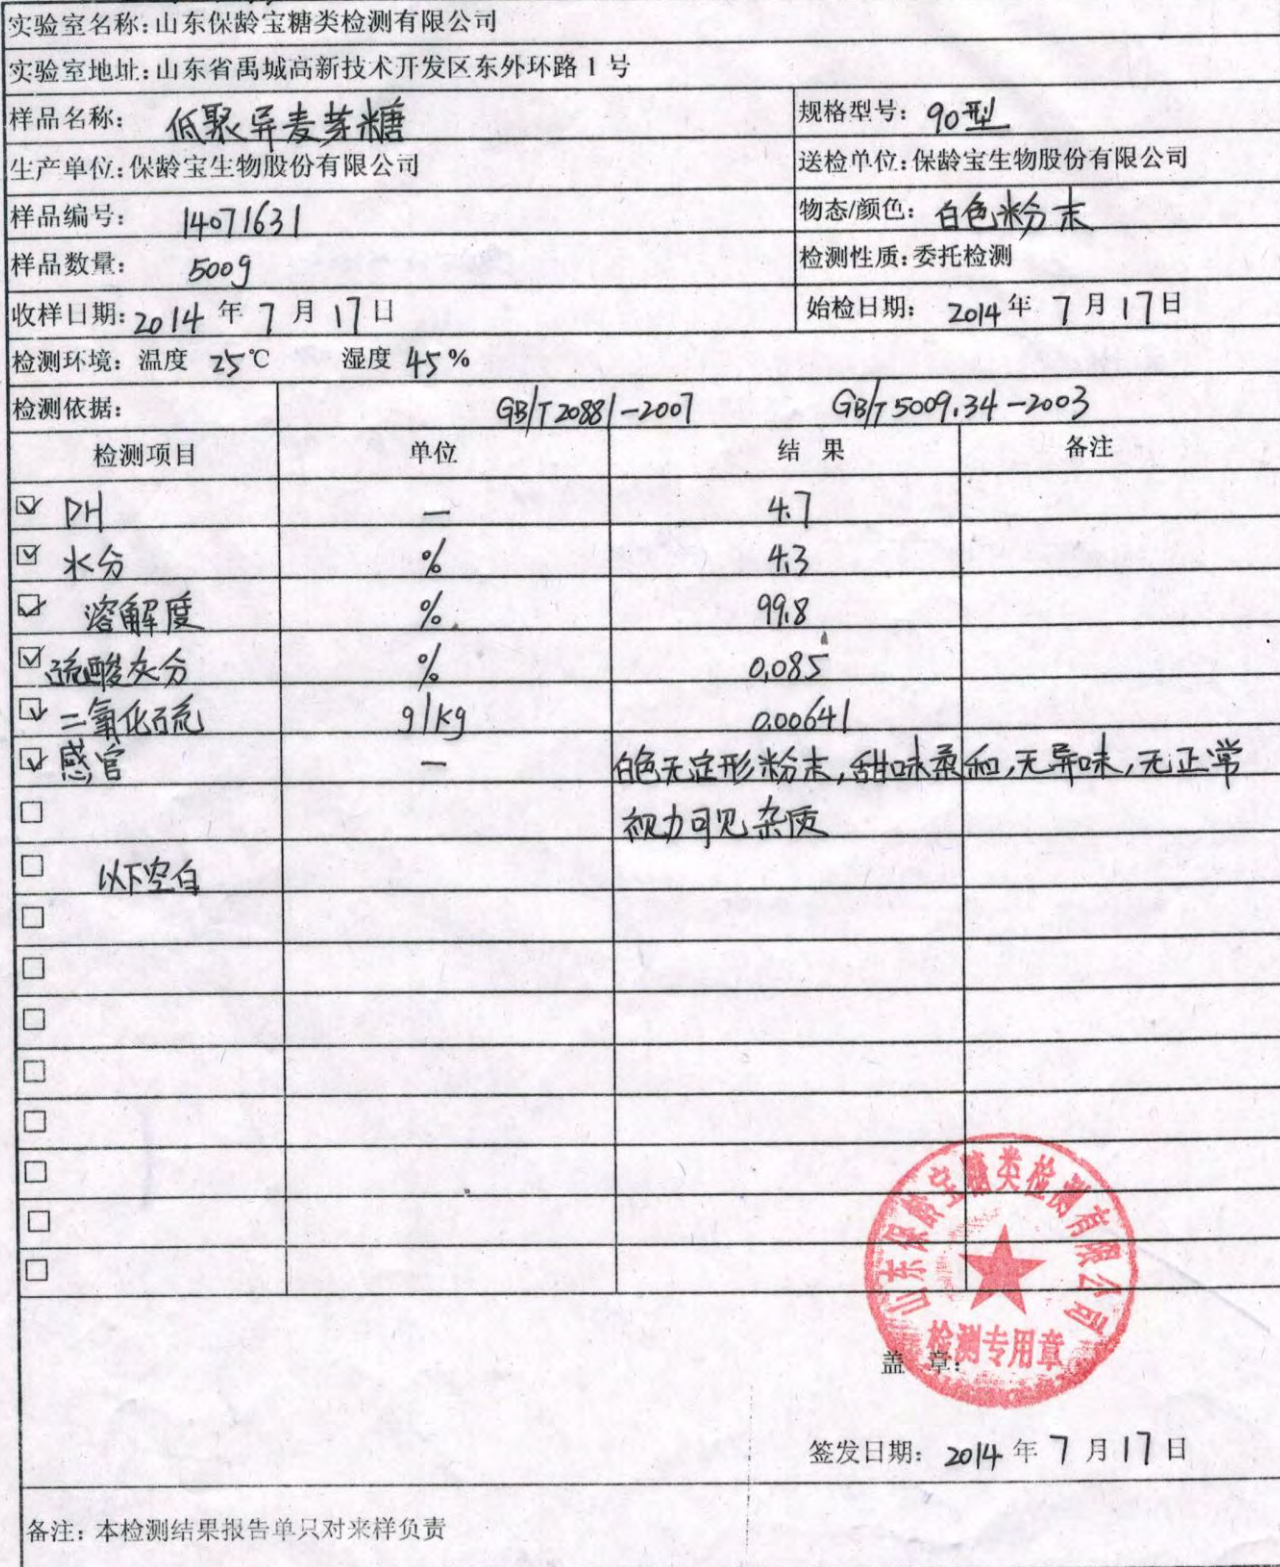 实验室名称:山东保龄宝糖类检测有限公司
实验室地址:山东省禹城高新技术开发区东外环路1号
样品名称: 低聚异麦芽糖 规格型号: 90型
生产单位:保龄宝生物股份有限公司 送检单位:保龄宝生物股份有限公司
样品编号: 14071631 物态/颜色: 白色粉末
样品数量: 500g 检测性质:委托检测
收样日期:2014年7月17日 始检日期: 2014年7月17日
检测环境: 温度 25℃ 湿度 45%
检测依据: GB/T20881-2007 GB/T5009.34-2003
检测项目 单位 结果 备注
PH — 4.7
水分 % 4.3
溶解度 % 99.8
硫酸灰分 % 0.085
二氧化硫 g/kg 0.00641
感官 — 白色无定形粉末,甜味柔和,无异味,无正常
视力可见杂质
以下空白
山东保龄宝糖类检测有限公司
检测专用章
盖 章:
签发日期: 2014年7月17日
备注: 本检测结果报告单只对来样负责